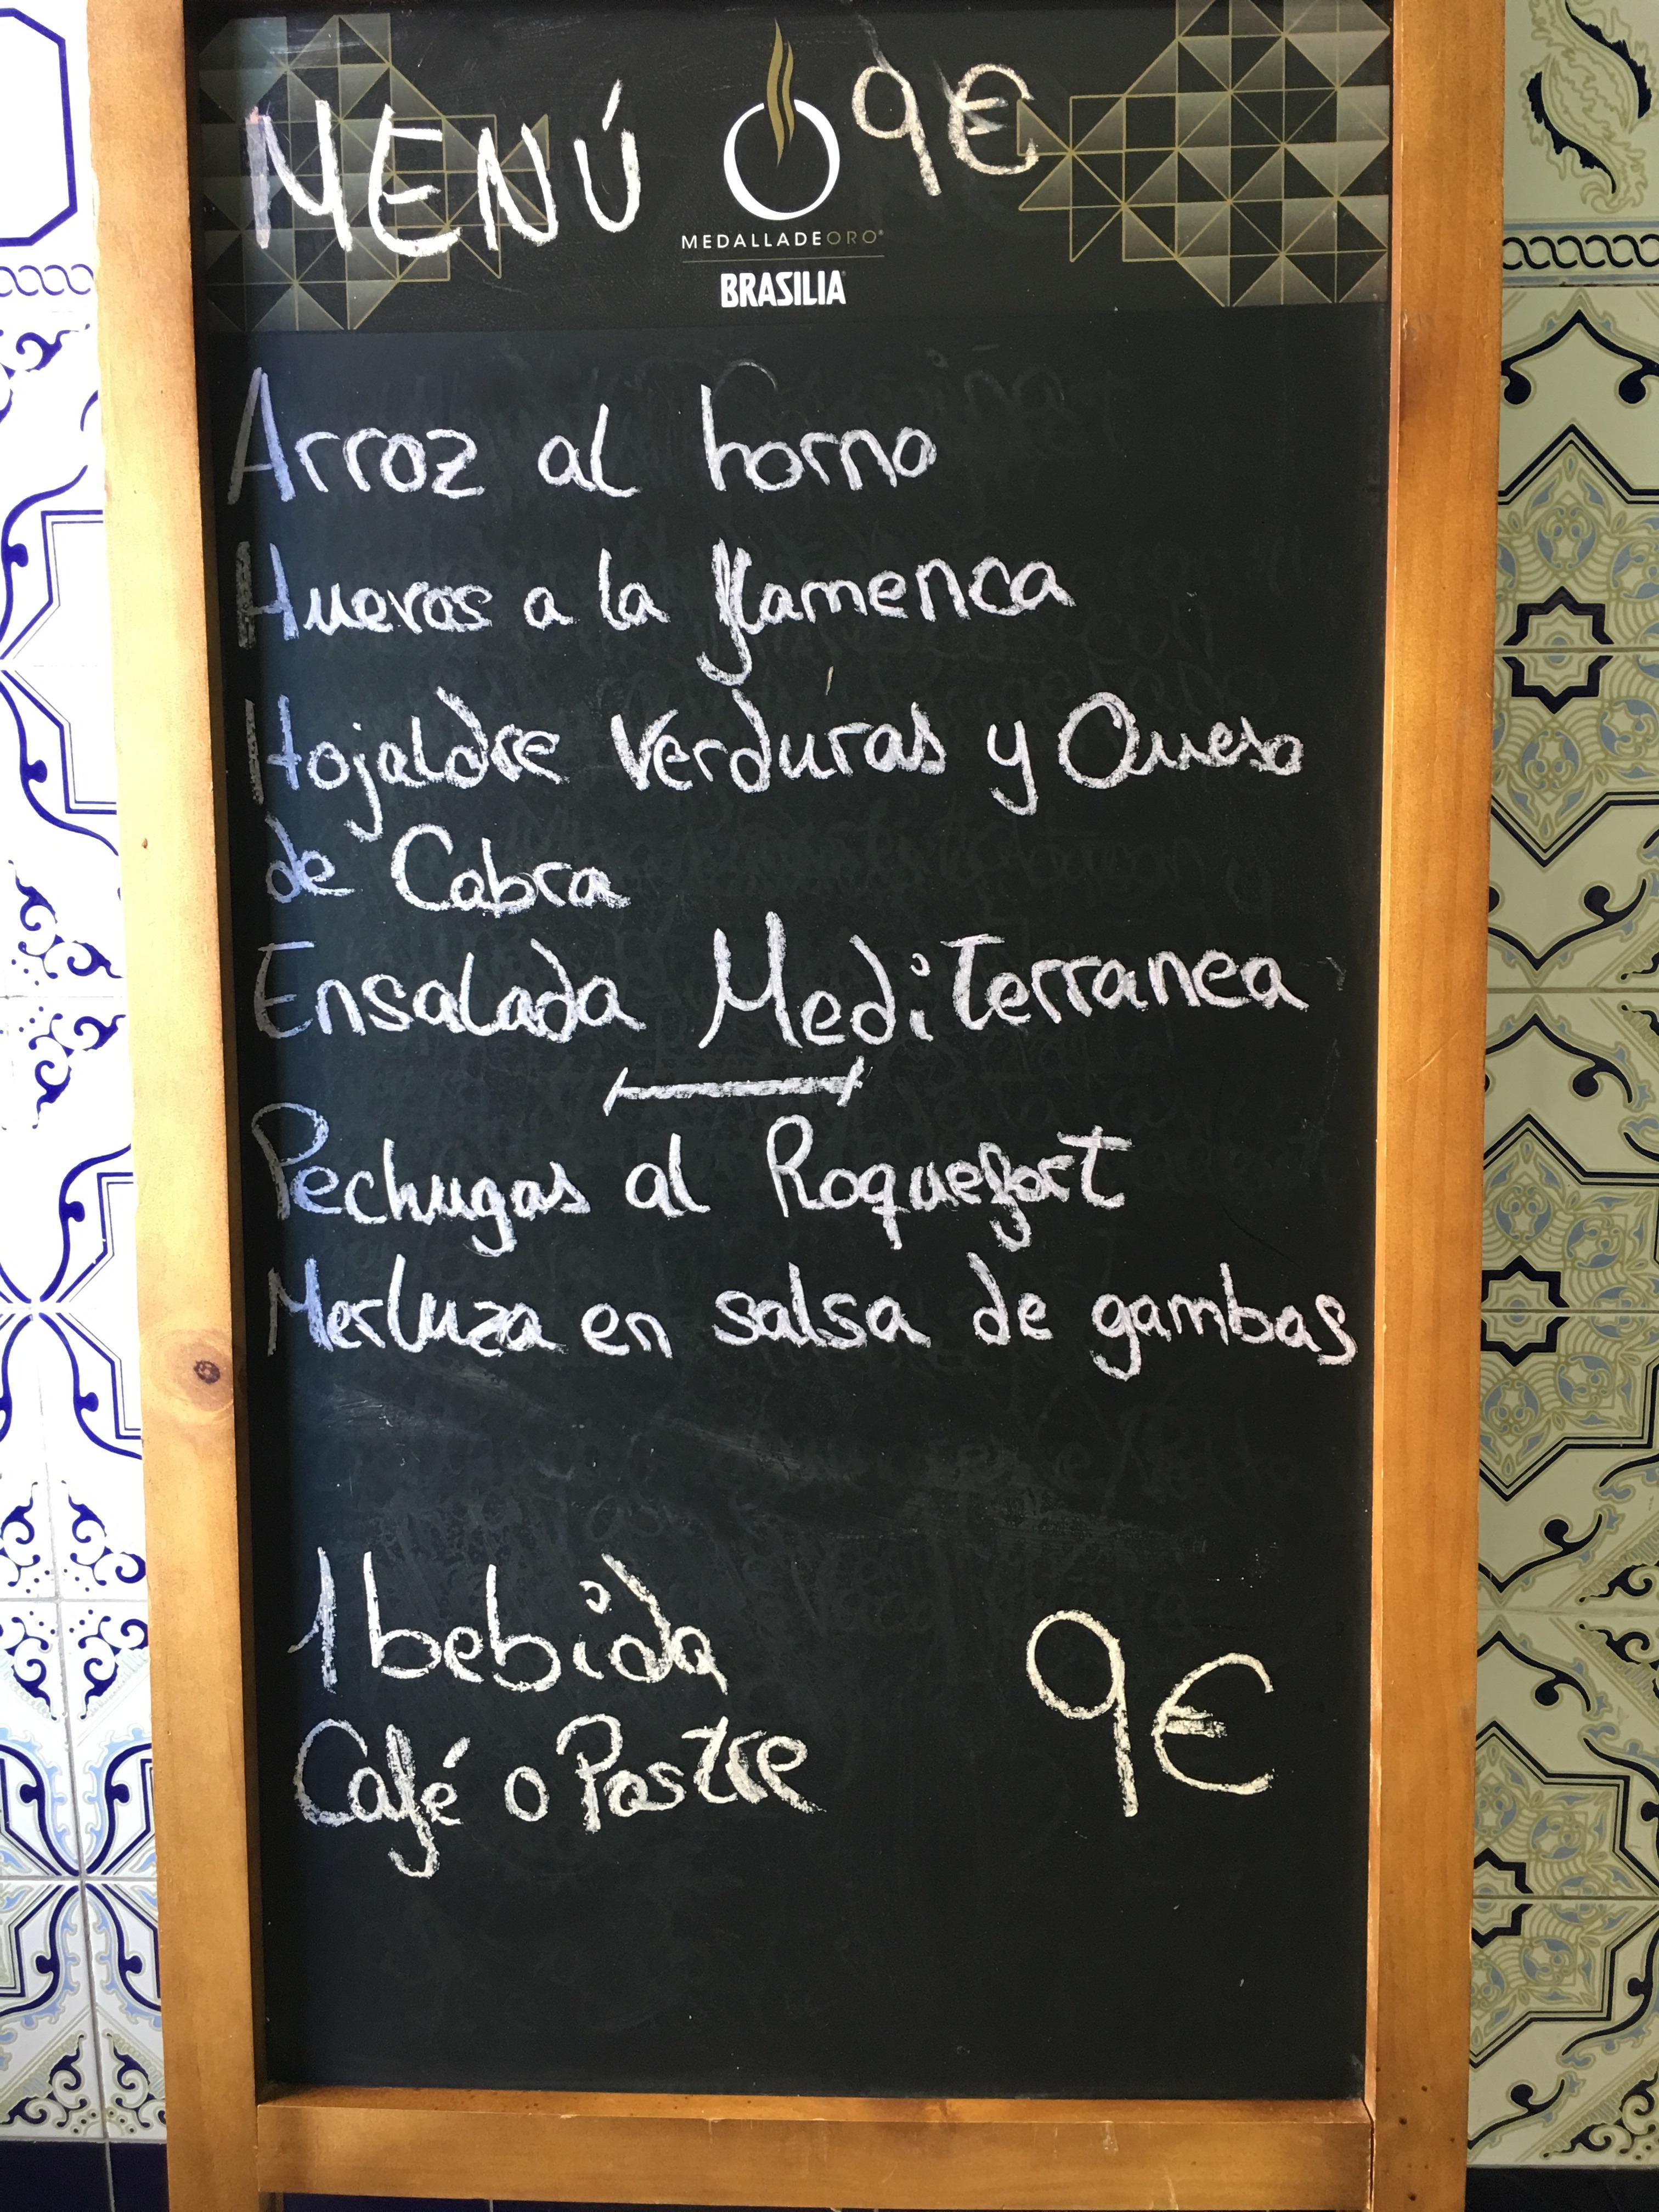 MENÚ 9€
MEDALLADEORO®
BRASILIA
Arroz al horno
Huevos a la flamenca
Hojaldre Verduras y Queso
de Cabra
Ensalada Mediterranea
Pechugas al Roquefort
Merluza en salsa de gambas
1 bebida
Café o Postre
9€